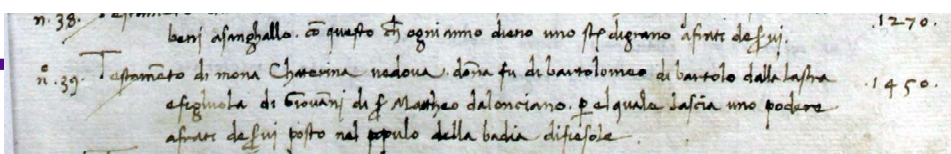 n. 38.
beni asanghallo. cō questo ch̄ ogni anno dieno uno st͞o digrano afrati de S͞vi. .1270.
n.º 39. Testamēto di mona Chaterina vedova. dōna fu di bartolomeo di bartolo dalla lastra .1450.
efigliuola di Giovāni di S͞ Mattheo dalonciano. p̱ el quale lascia uno podere
afrati de S͞vi posto nel popolo della badia difiesole